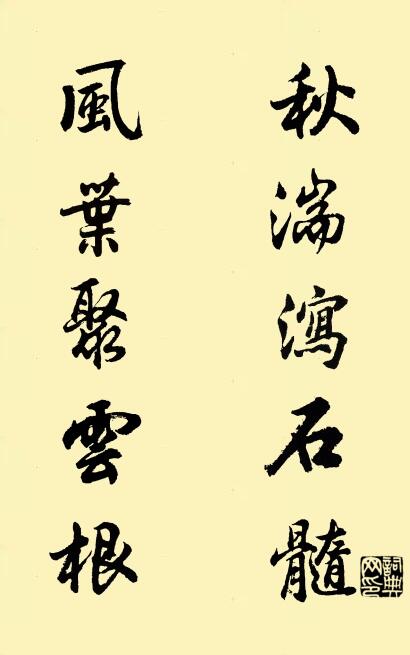 秋湍瀉石髓
風葉聚雲根
詞典網印